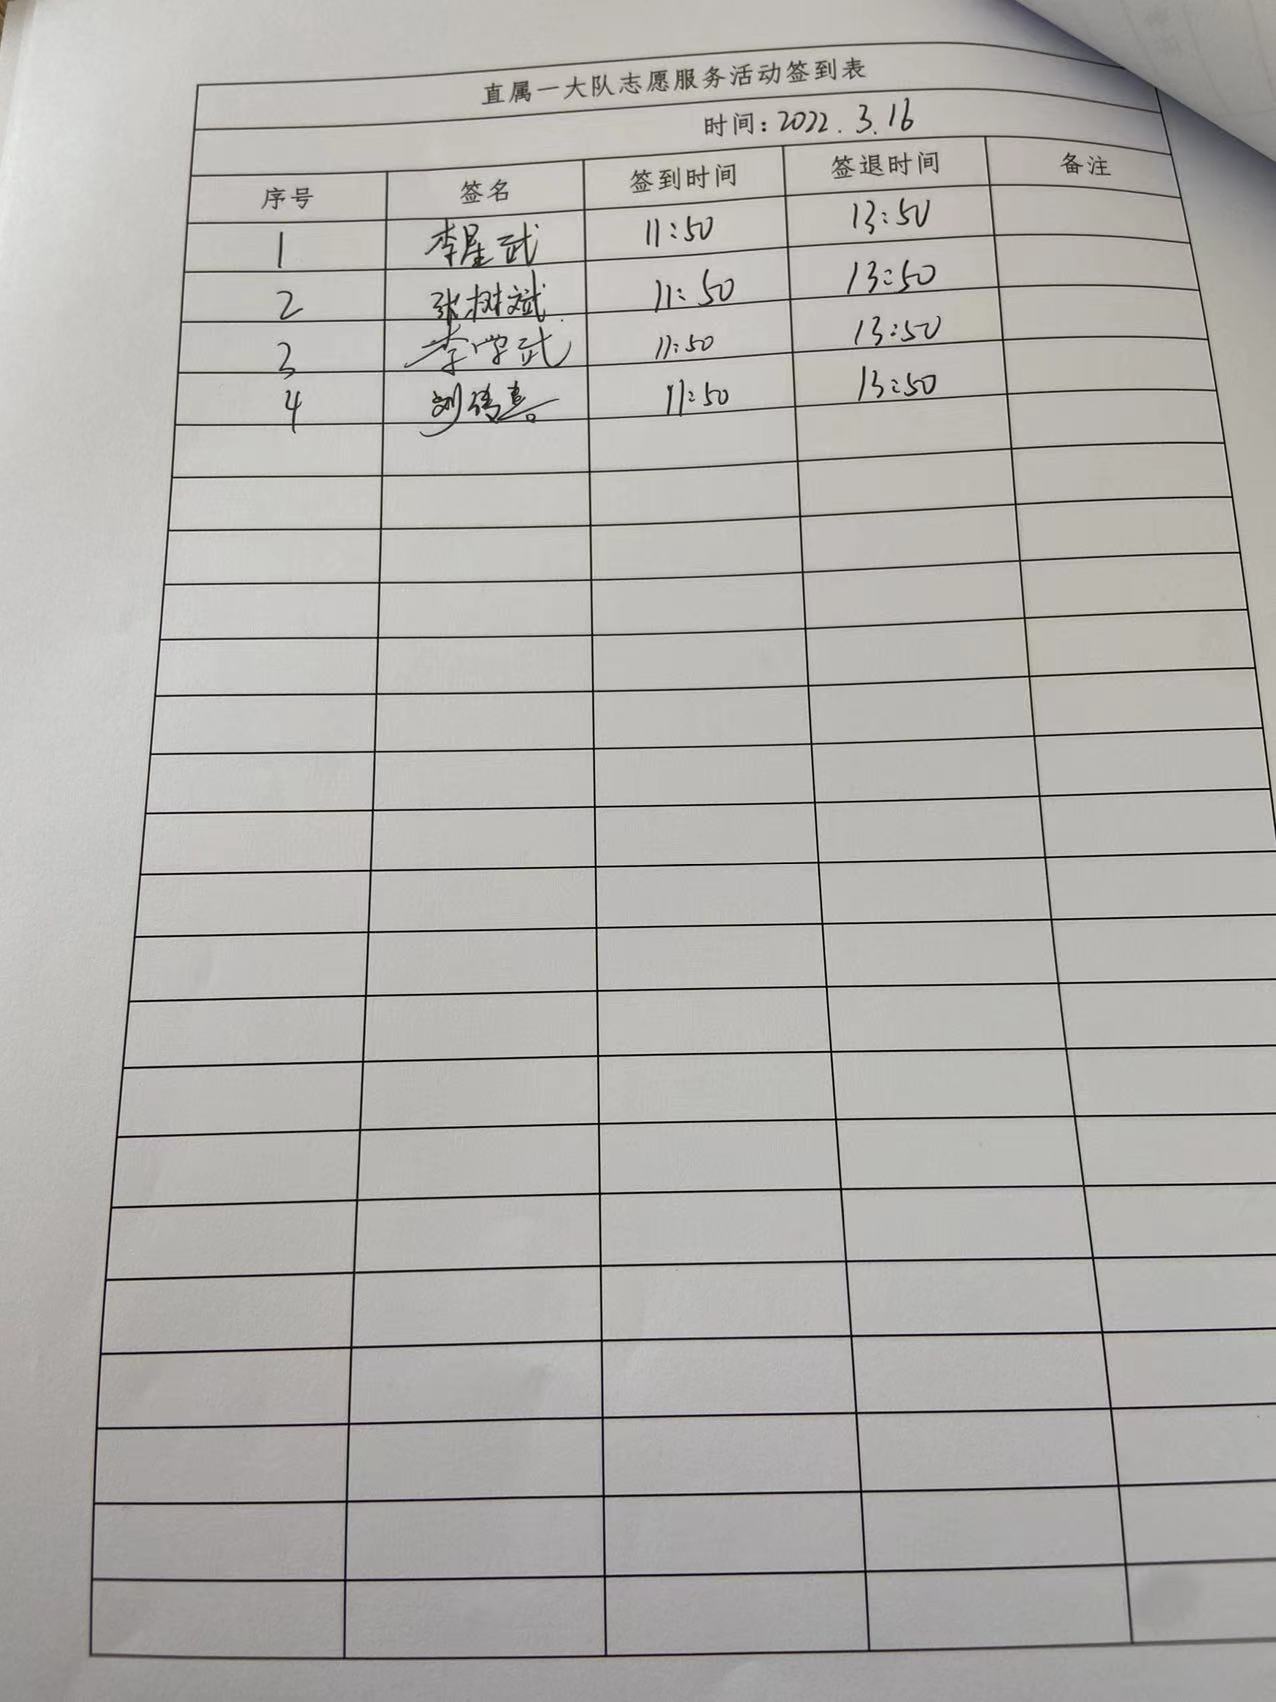 直属一大队志愿服务活动签到表
时间：2022.3.16
序号 签名 签到时间 签退时间 备注
1 李星武 11:50 13:50
2 张树斌 11:50 13:50
3 李学武 11:50 13:50
4 刘 11:50 13:50